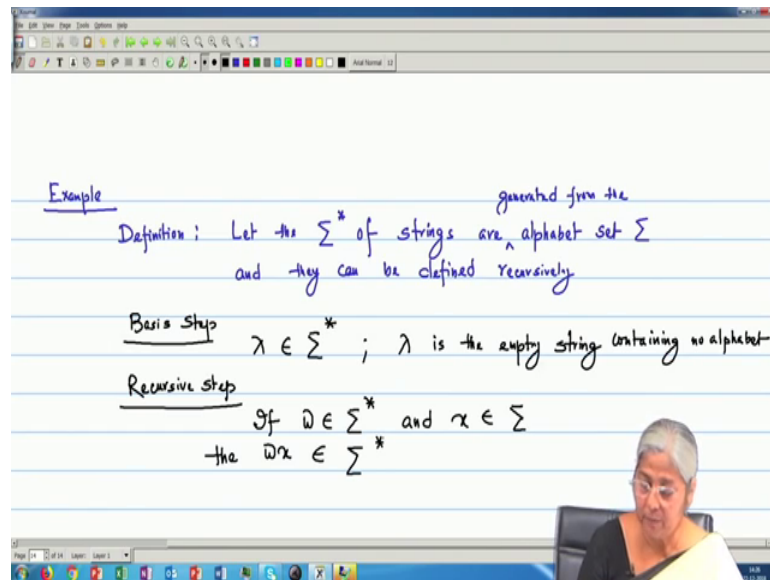 Journal
File Edit View Page Tools Options Help
Arial Normal 12
Example
generated from the
Definition : Let the Σ* of strings are ^ alphabet set Σ
and they can be defined recursively
Basis Step
λ ∈ Σ* ; λ is the empty string containing no alphabet
Recursive Step
If ω ∈ Σ* and x ∈ Σ
the ωx ∈ Σ*
Page 14 of 14 Layer: Layer 1
14:26